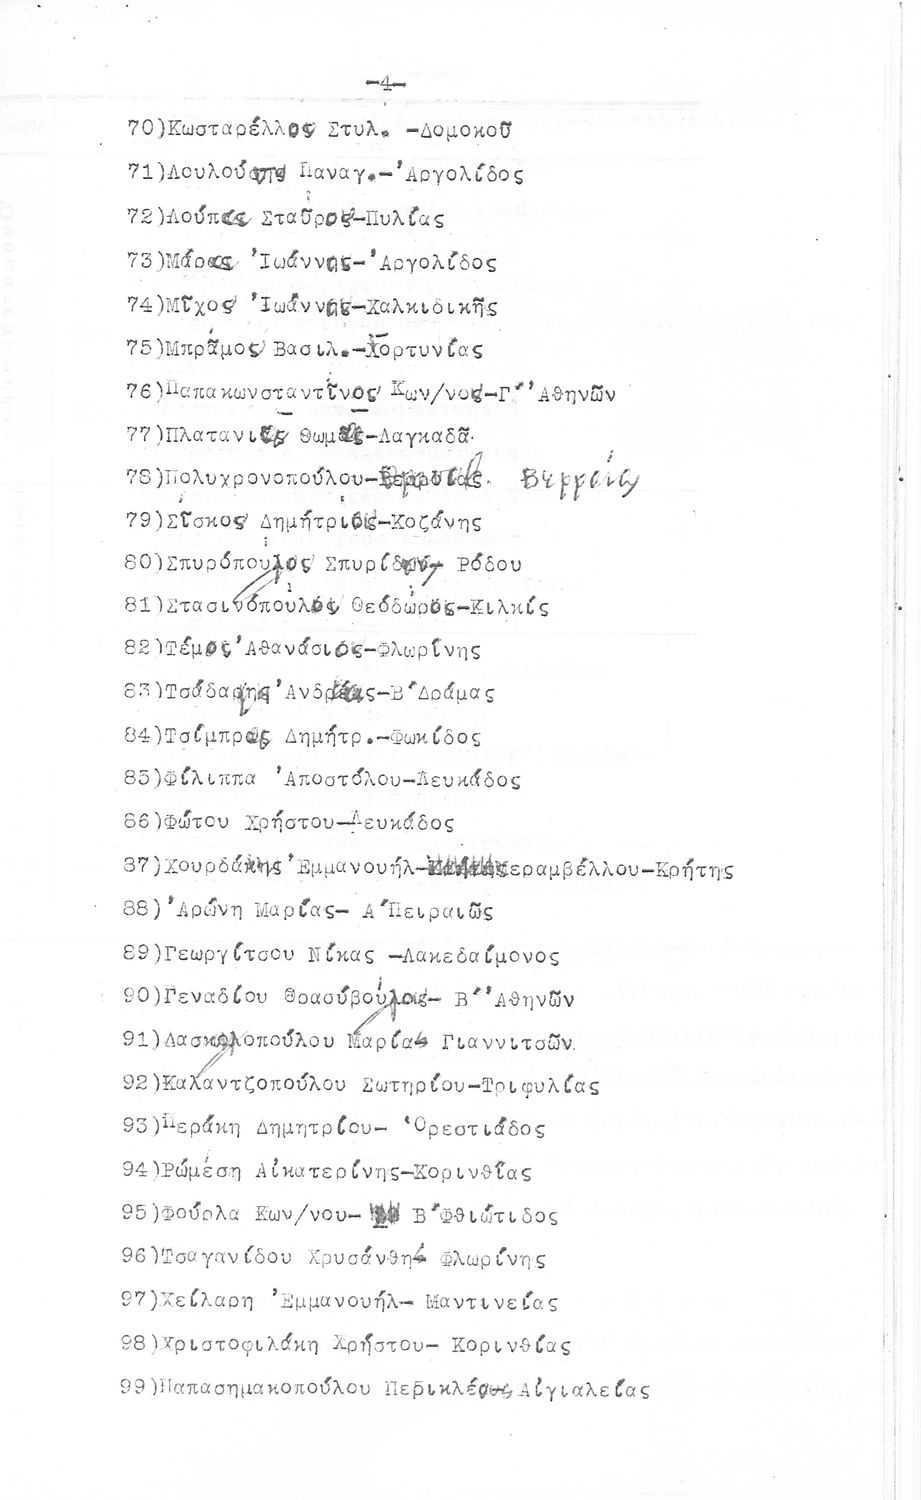 -4-
70)Κωσταρέλλος Στυλ. -Δομοκοῦ
71)Λουλούδης Παναγ.-'Αργολίδος
72)Λούπας Σταῦρος-Πυλίας
73)Μάρας 'Ιωάννης-'Αργολίδος
74)Μῖχος 'Ιωάννης-Χαλκιδικῆς
75)Μπράμος Βασιλ.-Γορτυνίας
76)Παπακωνσταντῖνος Κων/νος-Γ''Αθηνῶν
77)Πλατανιᾶς Θωμᾶς-Λαγκαδᾶ
78)Πολυχρονοπούλου- Βερροίας
79)Σῖσκος Δημήτριος-Κοζάνης
80)Σπυρόπουλος Σπυρίδων- Ρόδου
81)Στασινόπουλος Θεόδωρος-Κιλκίς
82)Τέμος 'Αθανάσιος-Φλωρίνης
83)Τσάδαρης 'Ανδρέας-Β'Δράμας
84)Τσίμπρας Δημήτρ.-Φωκίδος
85)Φίλιππα 'Αποστόλου-Λευκάδος
86)Φώτου Χρήστου-Λευκάδος
87)Χουρδάκης 'Εμμανουήλ-Μεραμβέλλου-Κρήτης
88)'Αρώνη Μαρίας- Α'Πειραιῶς
89)Γεωργίτσου Νίκας -Λακεδαίμονος
90)Γεναδίου Θρασύβουλος- Β''Αθηνῶν
91)Δασκαλοπούλου Μαρία- Γιαννιτσῶν
92)Καλαντζοπούλου Σωτηρίου-Τριφυλίας
93)Περάκη Δημητρίου- 'Ορεστιάδος
94)Ρώμέση Αἰκατερίνης-Κορινθίας
95)Φούρλα Κων/νου- Β'Φθιώτιδος
96)Τσαγανίδου Χρυσάνθη- Φλωρίνης
97)Χείλαρη 'Εμμανουήλ- Μαντινείας
98)Χριστοφιλάκη Χρήστου- Κορινθίας
99)Παπασημακοπούλου Περικλέους Αἰγιαλείας